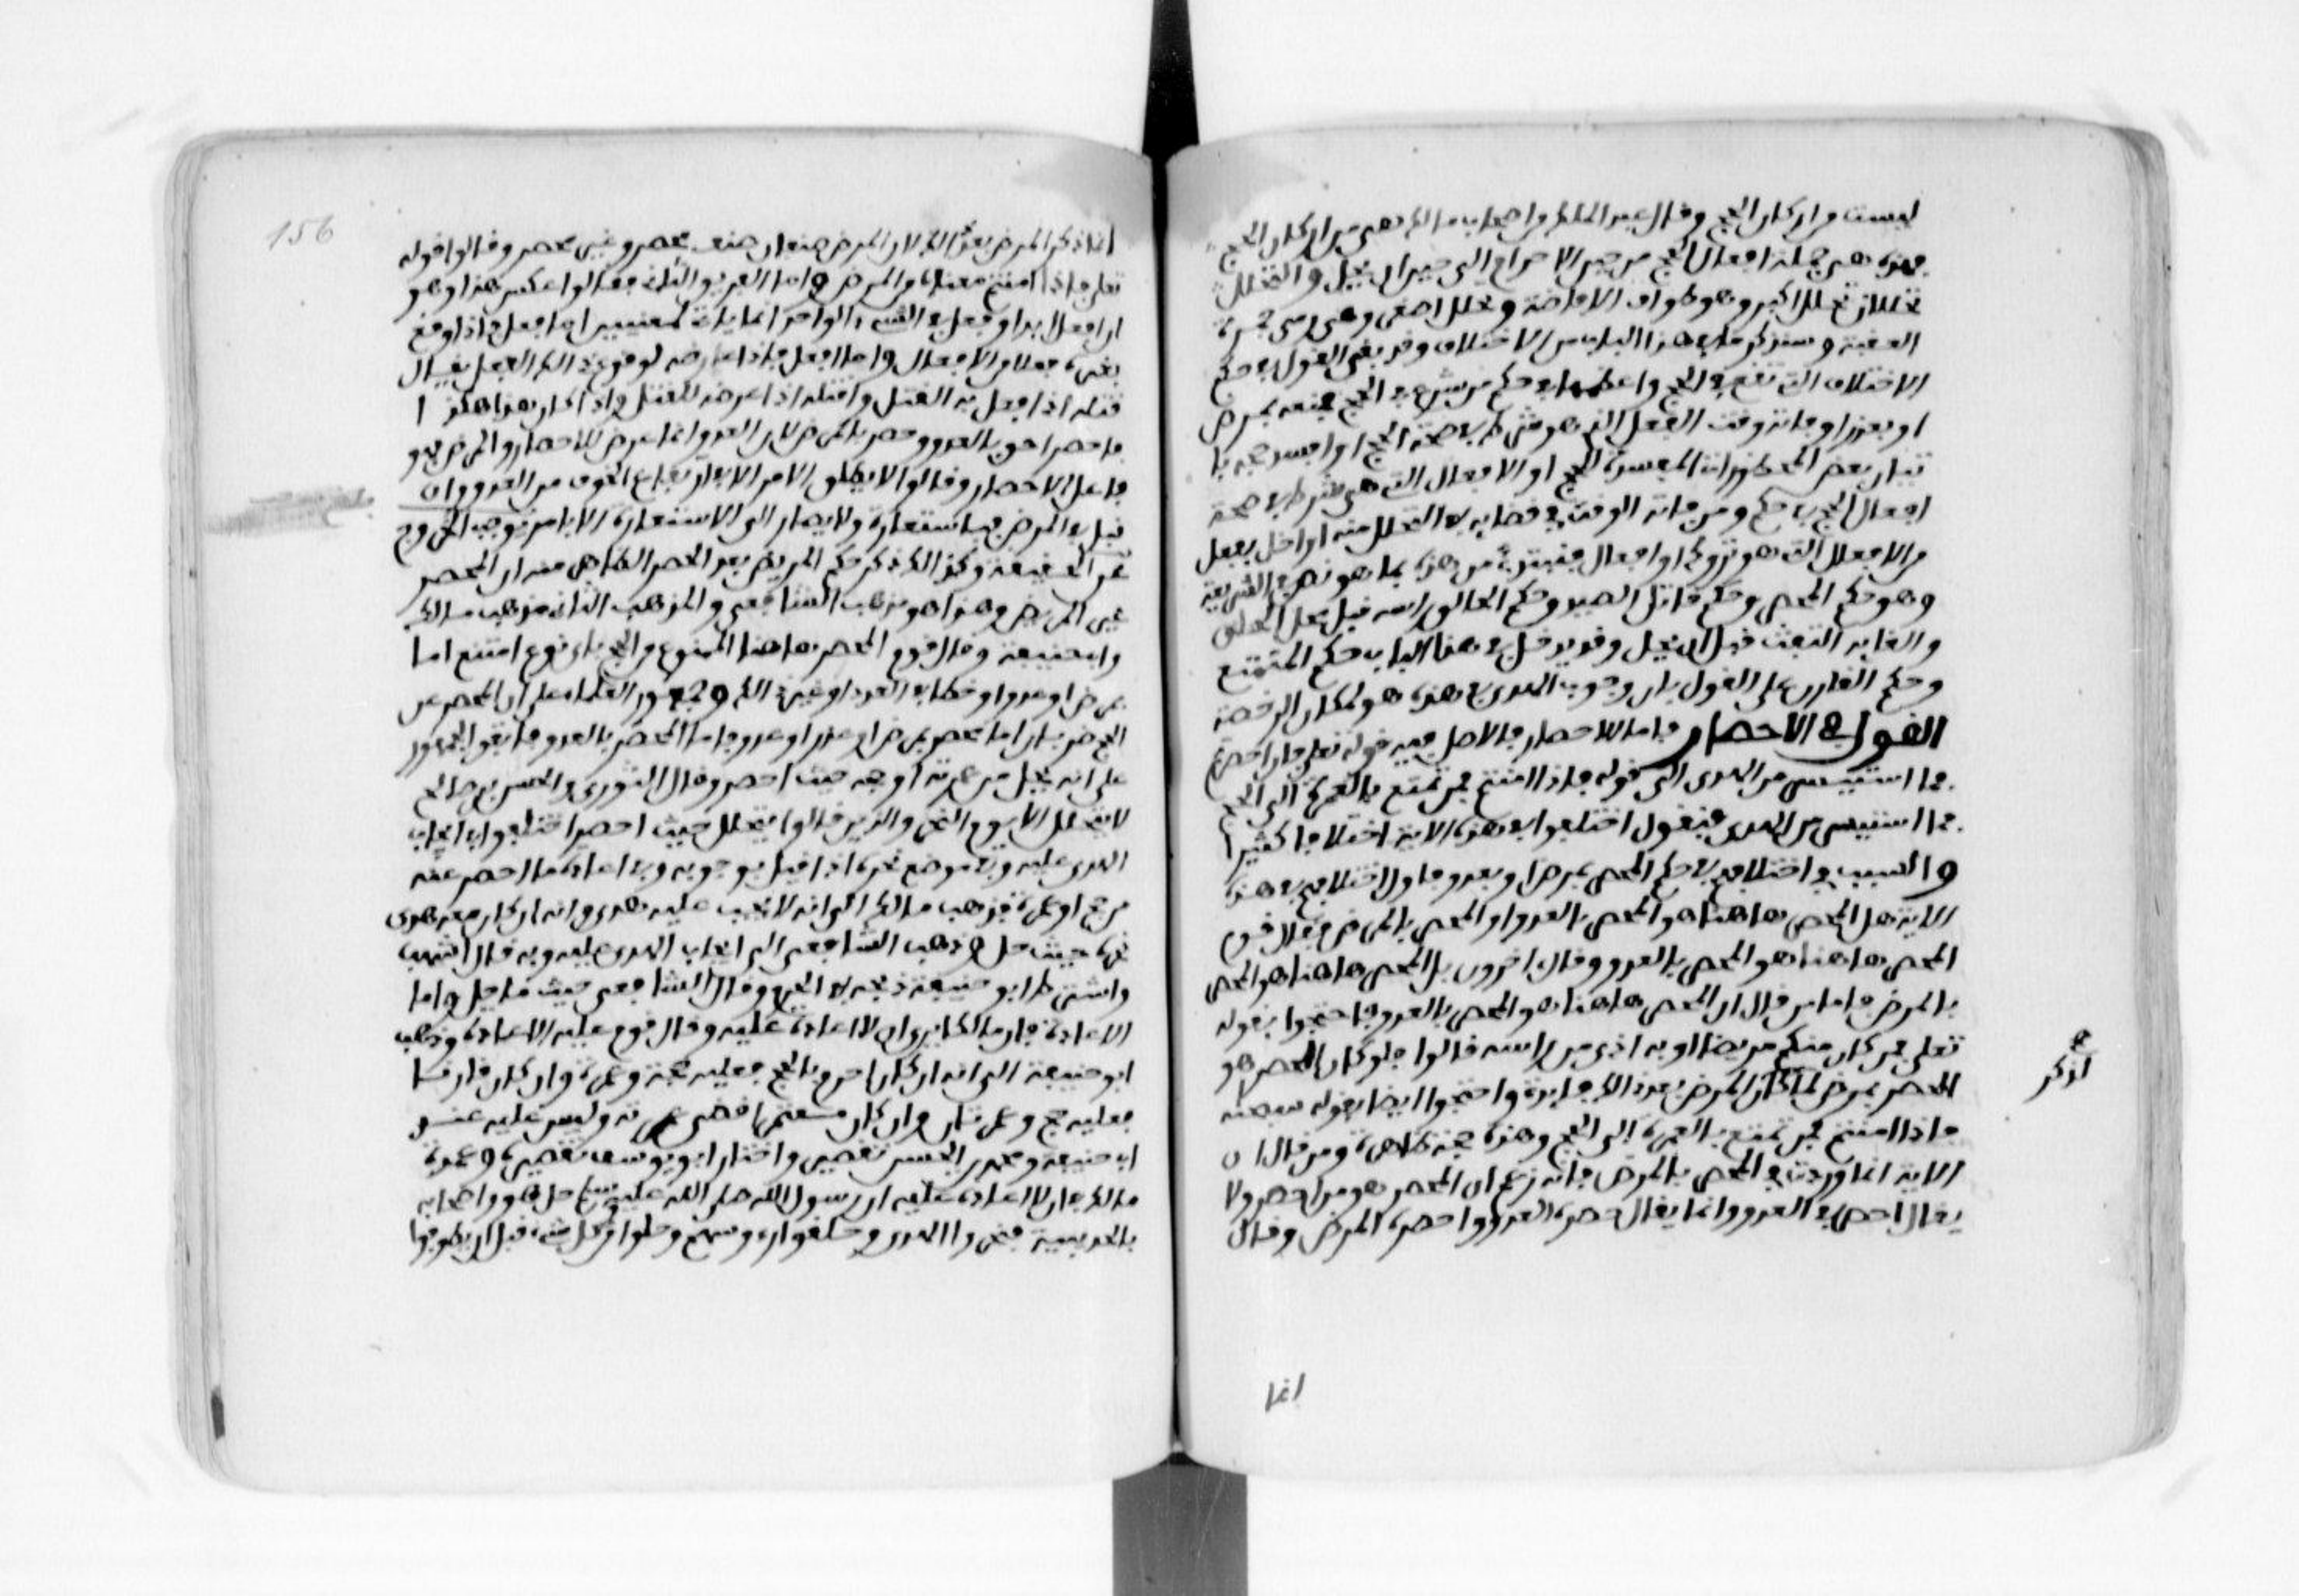 ليست من اركان الحج وقال عبد الملك من اصحاب مالك هي من اركان الحج
فهذه هي جملة افعال الحج من حين الاحرام الى حين ان يحل والتحلل
تحللان تحلل اكبر وهو طواف الافاضة وتحلل اصغر وهي رمي جمرة
العقبة وسنذكر ما في هذا الباب من الاختلاف وقد بقي القول في حكم
الاختلاف التي تقع في الحج واعظمها في حكم من شرع في الحج فمنعه بمرض
او بعدو او فاته وقت الفعل الذي هو شرط في صحة الحج او افسد حجه با
تيان بعض المحظورات المفسدة للحج او الافعال التي هي شرط في صحة
افعال الحج في حكم ومن فاته الوقت في قضايه في التحلل منه او اخل بفعل
من الافعال التي هو تروكها او افعال فنبتدئ من هذه بما هو نص في الشريعة
وهو حكم المحصر وحكم قاتل الصيد وحكم الحالق راسه قبل محل الحلق
والقايه التفث قبل ان يحل وقد يدخل في هذا الباب حكم المتمتع
وحكم القارن على القول بان وجوب الهدي في هذه هو لمكان الرخصة
القول في الاحصار فاما الاحصار فالاصل فيه قوله تعلى فان احصرتم
فما استيسر من الهدي الى قوله فاذا امنتم فمن تمتع بالعمرة الى الحج
فما استيسر من الهدي فنقول اختلفوا في هذه الاية اختلافا كثيرا
والسبب في اختلافهم في حكم المحصر بمرض او بعدو فاول اختلافهم في هذه
الاية هل المحصر هاهنا هو المحصر بالعدو او المحصر بالمرض فقال قوم
المحصر هاهنا هو المحصر بالعدو وقال اخرون بل المحصر هاهنا هو المحصر
بالمرض فاما من قال ان المحصر هاهنا هو المحصر بالعدو فاحتجوا بقوله
تعلى فمن كان منكم مريضا او به اذى من راسه قالوا فلو كان المحصر هو
المحصر بمرض لما كان لذكر المرض بعد ذلك فايدة واحتجوا ايضا بقوله سبحنه
فاذا امنتم فمن تمتع بالعمرة الى الحج وهذه حجة ظاهرة ومن قال ان
الاية انما وردت في المحصر بالمرض فانه زعم ان المحصر هو من احصر ولا
يقال احصر في العدو وانما يقال حصره العدو واحصره المرض وقال
لذكر
انما
156
انما ذكر المرض بعد ذلك لان المرض صنفان صنف محصر وغير محصر وقالوا قوله
تعلى فاذا امنتم معناه من المرض واما الفريق الثاني فقالوا عكس هذا وهو
ان افعل ابدا وفعل في الشيء الواحد انما ياتي لمعنيين اما فعل فاذا اوقع
بغيره فعلا من الافعال واما افعل فاذا عارضه لوقوع ذلك الفعل يقال
قتله اذا فعل به القتل واقتله اذا عرضه للقتل واذا كان هذا هكذا
فاحصر احق بالعدو وحصر بالمرض لان العدو انما عرض للاحصار والمرض فهو
فاعل الاحصار وقالوا لا يطلق الامر الا في ارتفاع الخوف من العدو وان
قيل في المرض فباستعارة ولا يصار الى الاستعارة الا بامر يوجب الخروج
عن الحقيقة وكذلك ذكر حكم المريض بعد الحصر الظاهر منه ان المحصر
غير المريض وهذا هو مذهب الشافعي والمذهب الثاني مذهب مالك
وابي حنيفة وقال قوم المحصر هاهنا الممنوع من الحج باي نوع امتنع اما
بمرض او عدو او خطا في العدد او غير ذلك وجمهور العلماء على ان المحصر عن
الحج ضربان اما محصر بمرض او عذر او عدو فاما المحصر بالعدو فاتفق الجمهور
على انه يحل من عمرته او حجه حيث احصر وقال الثوري والحسن بن صالح
لا يتحلل الا يوم النحر والذين قالوا يتحلل حيث احصر اختلفوا في ايجاب
الهدي عليه وفي موضع نحره اذا قيل بوجوبه وفي اعادة ما احصر عنه
من حج او عمرة فذهب مالك الى انه لا يجب عليه هدي وانه ان كان معه هدي
نحره حيث حل وذهب الشافعي الى ايجاب الهدي عليه وبه قال اشهب
واشترط ابو حنيفة ذبحه في الحرم وقال الشافعي حيث ما حل واما
الاعادة فان مالكا يرى ان لا اعادة عليه وقال قوم عليه الاعادة وذهب
ابو حنيفة الى انه ان كان احرم بالحج فعليه حجة وعمرة وان كان قارنا
فعليه حج وعمرتان وان كان معتمرا قضى عمرته وليس عليه عند
ابي حنيفة ومحمد بن الحسن تقصير واختار ابو يوسف تقصيره وعمدة
مالك في ان لا اعادة عليه ان رسول الله صلى الله عليه وسلم حل هو واصحابه
بالحديبية فنحروا الهدي وحلقوا رءوسهم وحلوا من كل شيء قبل ان يطوفوا